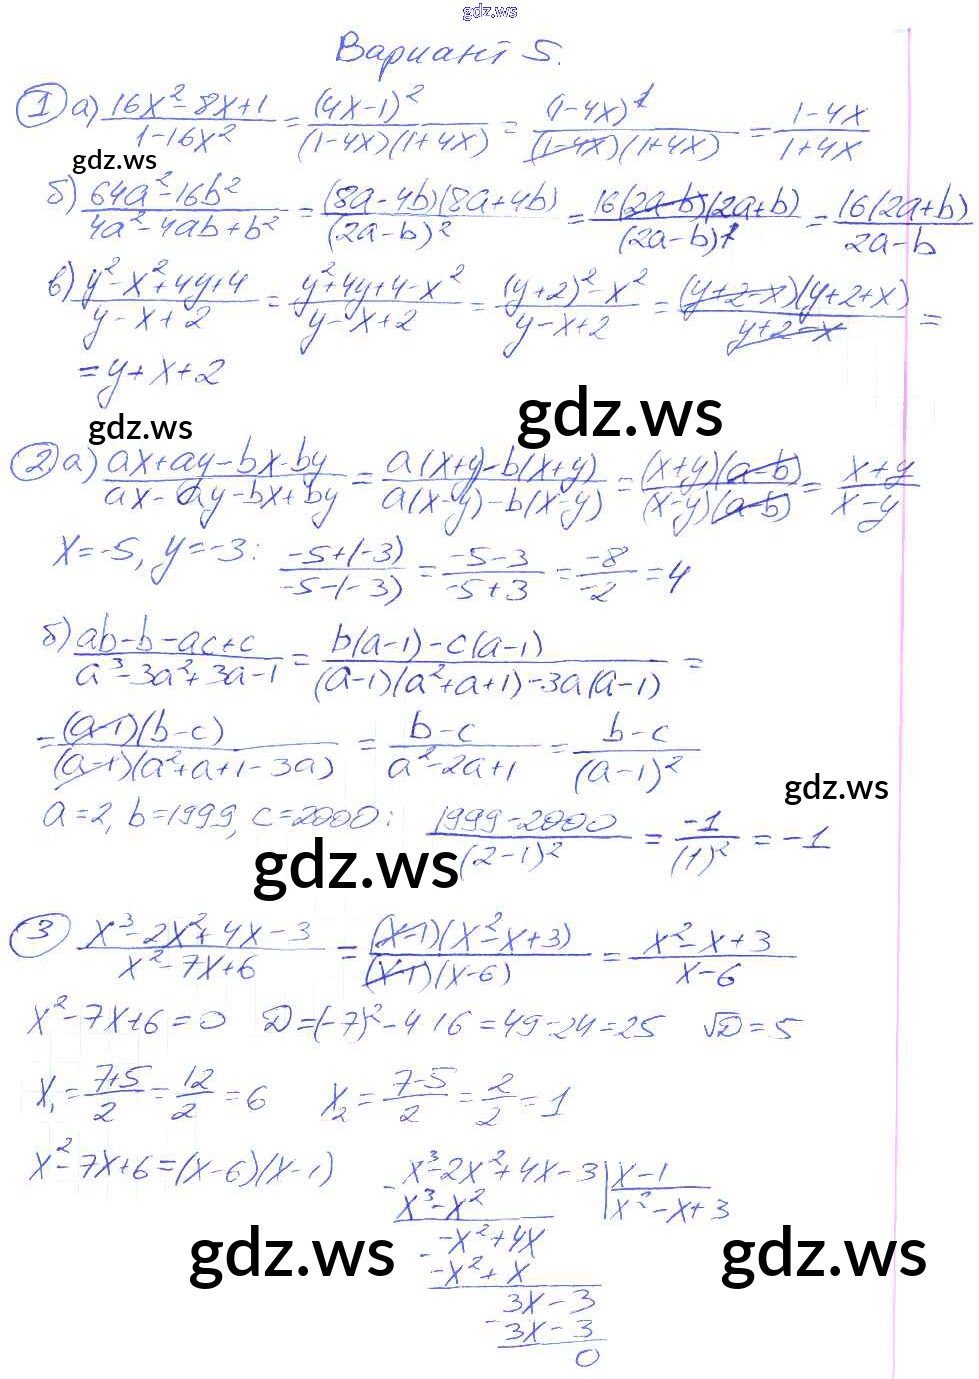 gdz.ws
Вариант 5.
1 а) (16x² - 8x + 1)/(1 - 16x²) = (4x - 1)²/((1 - 4x)(1 + 4x)) = (1 - 4x)²/((1 - 4x)(1 + 4x)) = (1 - 4x)/(1 + 4x)
gdz.ws
б) (64a² - 16b²)/(4a² - 4ab + b²) = (8a - 4b)(8a + 4b)/(2a - b)² = 16(2a - b)(2a + b)/(2a - b)² = 16(2a + b)/(2a - b)
в) (y² - x² + 4y + 4)/(y - x + 2) = (y² + 4y + 4 - x²)/(y - x + 2) = ((y + 2)² - x²)/(y - x + 2) = (y + 2 - x)(y + 2 + x)/(y + 2 - x) =
= y + x + 2
gdz.ws
gdz.ws
2 а) (ax + ay - bx - by)/(ax - ay - bx + by) = (a(x + y) - b(x + y))/(a(x - y) - b(x - y)) = (x + y)(a - b)/((x - y)(a - b)) = (x + y)/(x - y)
x = -5, y = -3: (-5 + (-3))/(-5 - (-3)) = (-5 - 3)/(-5 + 3) = -8/-2 = 4
б) (ab - b - ac + c)/(a³ - 3a² + 3a - 1) = (b(a - 1) - c(a - 1))/((a - 1)(a² + a + 1) - 3a(a - 1)) =
= (a - 1)(b - c)/((a - 1)(a² + a + 1 - 3a)) = (b - c)/(a² - 2a + 1) = (b - c)/(a - 1)²
gdz.ws
a = 2, b = 1999, c = 2000: (1999 - 2000)/(2 - 1)² = -1/(1)² = -1
gdz.ws
3 (x³ - 2x² + 4x - 3)/(x² - 7x + 6) = (x - 1)(x² - x + 3)/((x - 1)(x - 6)) = (x² - x + 3)/(x - 6)
x² - 7x + 6 = 0 D = (-7)² - 4·1·6 = 49 - 24 = 25 √D = 5
x₁ = (7 + 5)/2 = 12/2 = 6 x₂ = (7 - 5)/2 = 2/2 = 1
x² - 7x + 6 = (x - 6)(x - 1)
- x³ - 2x² + 4x - 3 | x - 1
x³ - x² | x² - x + 3
- -x² + 4x
-x² + x
gdz.ws
gdz.ws
3x - 3
- 3x - 3
0